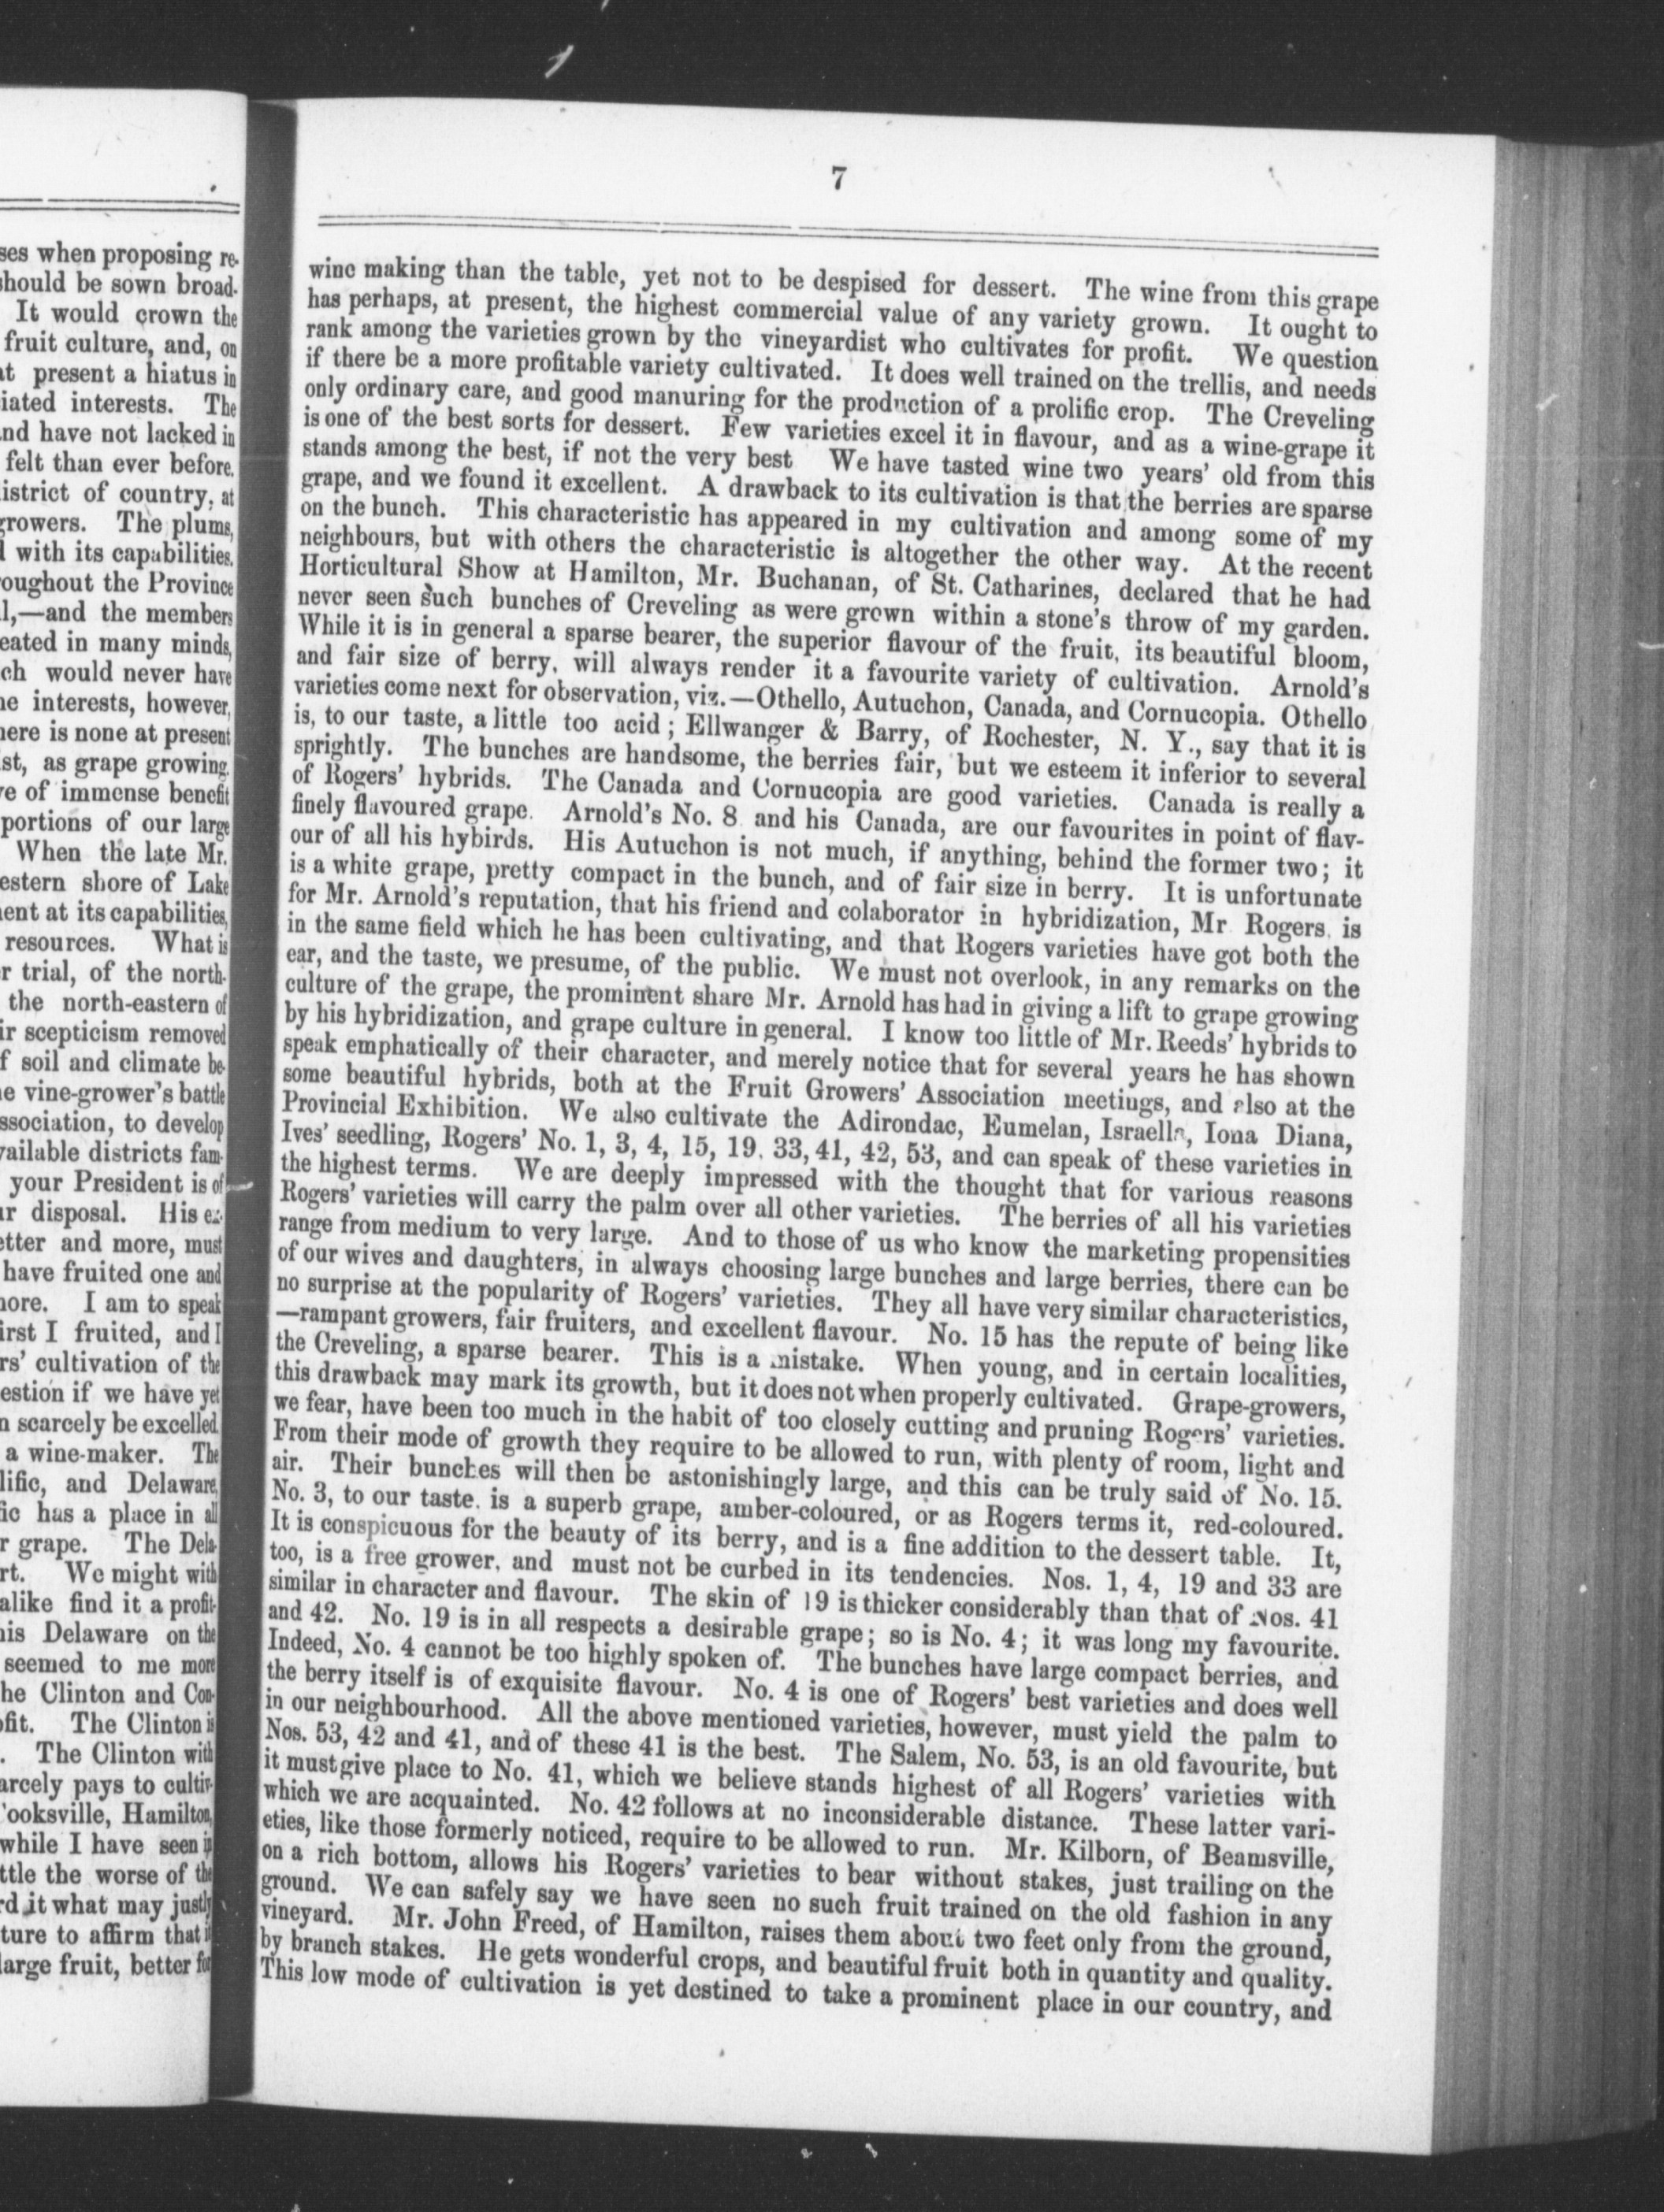 ses when proposing re-
should be sown broad-
It would crown the
fruit culture, and, on
at present a hiatus in
iated interests. The
and have not lacked in
felt than ever before.
istrict of country, at
growers. The plums,
with its capabilities.
roughout the Province
l,—and the members
eated in many minds,
ch would never have
interests, however,
here is none at present
st, as grape growing.
ve of immense benefit
portions of our large
When the late Mr.
estern shore of Lake
ent at its capabilities,
resources. What is
r trial, of the north-
the north-eastern of
ir scepticism removed
f soil and climate be-
e vine-grower's battle
ssociation, to develop
vailable districts fam-
your President is of
ur disposal. His ex-
etter and more, must
have fruited one and
more. I am to speak
irst I fruited, and I
rs' cultivation of the
estion if we have yet
n scarcely be excelled.
a wine-maker. The
lific, and Delaware,
fic has a place in all
r grape. The Dela-
rt. We might with
alike find it a profit-
his Delaware on the
seemed to me more
he Clinton and Con-
ofit. The Clinton is
. The Clinton with
arcely pays to cultiv-
ooksville, Hamilton,
while I have seen in
ttle the worse of the
rd it what may justly
ture to affirm that it
large fruit, better for
7
wine making than the table, yet not to be despised for dessert. The wine from this grape
has perhaps, at present, the highest commercial value of any variety grown. It ought to
rank among the varieties grown by the vineyardist who cultivates for profit. We question
if there be a more profitable variety cultivated. It does well trained on the trellis, and needs
only ordinary care, and good manuring for the production of a prolific crop. The Creveling
is one of the best sorts for dessert. Few varieties excel it in flavour, and as a wine-grape it
stands among the best, if not the very best We have tasted wine two years' old from this
grape, and we found it excellent. A drawback to its cultivation is that the berries are sparse
on the bunch. This characteristic has appeared in my cultivation and among some of my
neighbours, but with others the characteristic is altogether the other way. At the recent
Horticultural Show at Hamilton, Mr. Buchanan, of St. Catharines, declared that he had
never seen such bunches of Creveling as were grown within a stone's throw of my garden.
While it is in general a sparse bearer, the superior flavour of the fruit, its beautiful bloom,
and fair size of berry, will always render it a favourite variety of cultivation. Arnold's
varieties come next for observation, viz.—Othello, Autuchon, Canada, and Cornucopia. Othello
is, to our taste, a little too acid; Ellwanger & Barry, of Rochester, N. Y., say that it is
sprightly. The bunches are handsome, the berries fair, but we esteem it inferior to several
of Rogers' hybrids. The Canada and Cornucopia are good varieties. Canada is really a
finely flavoured grape. Arnold's No. 8 and his Canada, are our favourites in point of flav-
our of all his hybirds. His Autuchon is not much, if anything, behind the former two; it
is a white grape, pretty compact in the bunch, and of fair size in berry. It is unfortunate
for Mr. Arnold's reputation, that his friend and colaborator in hybridization, Mr Rogers, is
in the same field which he has been cultivating, and that Rogers varieties have got both the
ear, and the taste, we presume, of the public. We must not overlook, in any remarks on the
culture of the grape, the prominent share Mr. Arnold has had in giving a lift to grape growing
by his hybridization, and grape culture in general. I know too little of Mr. Reeds' hybrids to
speak emphatically of their character, and merely notice that for several years he has shown
some beautiful hybrids, both at the Fruit Growers' Association meetings, and also at the
Provincial Exhibition. We also cultivate the Adirondac, Eumelan, Israella, Iona Diana,
Ives' seedling, Rogers' No. 1, 3, 4, 15, 19. 33, 41, 42, 53, and can speak of these varieties in
the highest terms. We are deeply impressed with the thought that for various reasons
Rogers' varieties will carry the palm over all other varieties. The berries of all his varieties
range from medium to very large. And to those of us who know the marketing propensities
of our wives and daughters, in always choosing large bunches and large berries, there can be
no surprise at the popularity of Rogers' varieties. They all have very similar characteristics,
—rampant growers, fair fruiters, and excellent flavour. No. 15 has the repute of being like
the Creveling, a sparse bearer. This is a mistake. When young, and in certain localities,
this drawback may mark its growth, but it does not when properly cultivated. Grape-growers,
we fear, have been too much in the habit of too closely cutting and pruning Rogers' varieties.
From their mode of growth they require to be allowed to run, with plenty of room, light and
air. Their bunches will then be astonishingly large, and this can be truly said of No. 15.
No. 3, to our taste. is a superb grape, amber-coloured, or as Rogers terms it, red-coloured.
It is conspicuous for the beauty of its berry, and is a fine addition to the dessert table. It,
too, is a free grower, and must not be curbed in its tendencies. Nos. 1, 4, 19 and 33 are
similar in character and flavour. The skin of 19 is thicker considerably than that of Nos. 41
and 42. No. 19 is in all respects a desirable grape; so is No. 4; it was long my favourite.
Indeed, No. 4 cannot be too highly spoken of. The bunches have large compact berries, and
the berry itself is of exquisite flavour. No. 4 is one of Rogers' best varieties and does well
in our neighbourhood. All the above mentioned varieties, however, must yield the palm to
Nos. 53, 42 and 41, and of these 41 is the best. The Salem, No. 53, is an old favourite, but
it must give place to No. 41, which we believe stands highest of all Rogers' varieties with
which we are acquainted. No. 42 follows at no inconsiderable distance. These latter vari-
eties, like those formerly noticed, require to be allowed to run. Mr. Kilborn, of Beamsville,
on a rich bottom, allows his Rogers' varieties to bear without stakes, just trailing on the
ground. We can safely say we have seen no such fruit trained on the old fashion in any
vineyard. Mr. John Freed, of Hamilton, raises them about two feet only from the ground,
by branch stakes. He gets wonderful crops, and beautiful fruit both in quantity and quality.
This low mode of cultivation is yet destined to take a prominent place in our country, and